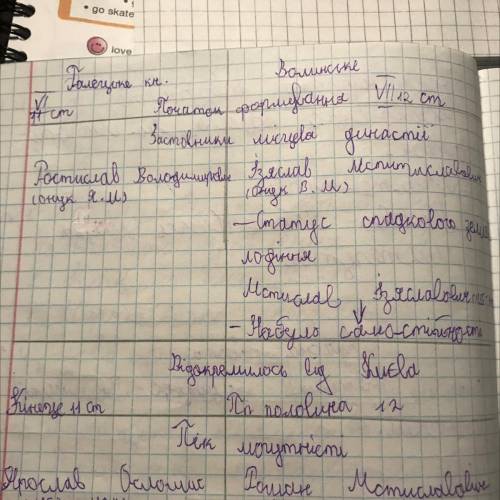 • go skate
love
Галецьке кн. Волинське
VI
11 ст Початок формування VII 12 ст
Засновники місцева династії
Ростислав Володимирович Ізяслав Мститиславович
(онук Я.М) (онук В. М)
– Статус спадкового
Мстислав Ізяславович
– Набуло само-стійності
Відокремилось від Києва
Кінець 11 ст Пп половина 12
Пік могутності
Ярослав Осломис Роман Мстиславович